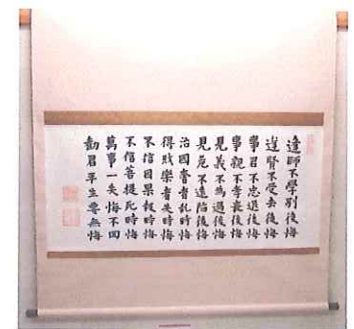 達師不學別後悔
逢賢不受去後悔
事君不忠退後悔
事親不孝喪後悔
見義不為過後悔
見危不遠陷後悔
治國奢者亂時悔
得財樂者失時悔
不信因果報時悔
不信菩提死時悔
萬事一失悔不回
勸君平生要無悔